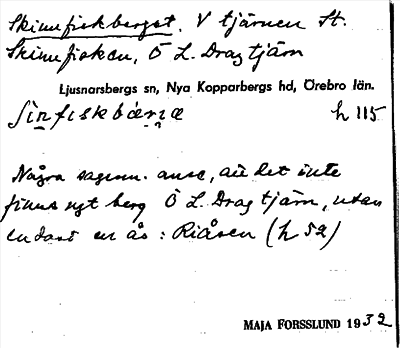 Skinnfiskberget. V tjärnen St.
Skinnfisken, Ö L. Dragtjärn
Ljusnarsbergs sn, Nya Kopparbergs hd, Örebro län.
h 115
Några sagesm. anse, att det inte
finns ngt berg Ö L. Dragtjärn, utan
endast en ås: Riåsen (h 52)
MAJA FORSSLUND 1932